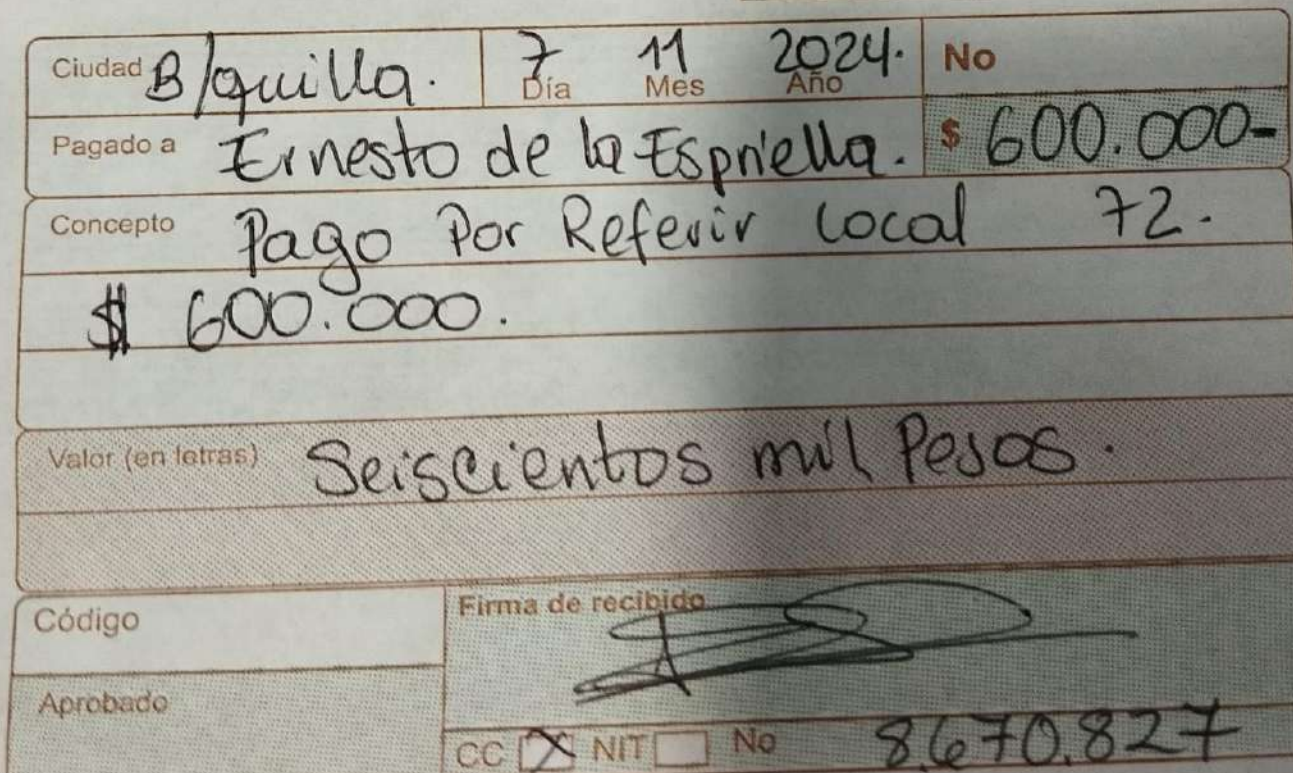 Ciudad B/quilla. 7 11 2024. No
Día Mes Año
Pagado a Ernesto de la Espriella. $ 600.000-
Concepto Pago Por Referir Local 72.
$ 600.000.
Valor (en letras) Seiscientos mil Pesos.
Código Firma de recibido
Aprobado
CC X NIT No 8.670.827